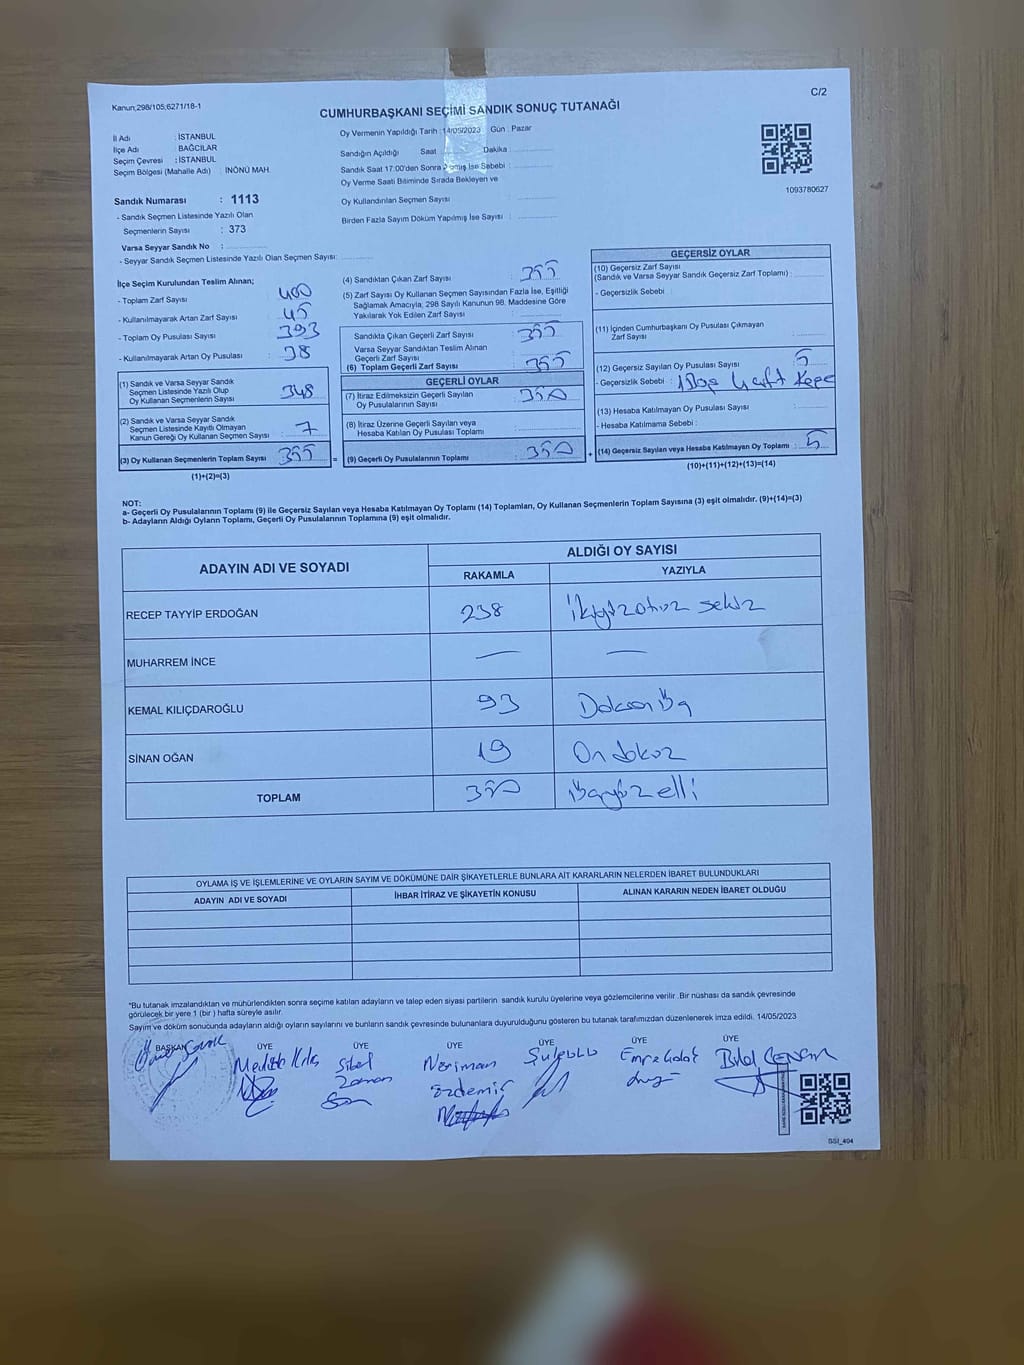 Kanun;298/105;6271/18-1
C/2
CUMHURBAŞKANI SEÇİMİ SANDIK SONUÇ TUTANAĞI
İl Adı : İSTANBUL
İlçe Adı : BAĞCILAR
Seçim Çevresi : İSTANBUL
Seçim Bölgesi (Mahalle Adı) : İNÖNÜ MAH.
Oy Vermenin Yapıldığı Tarih : 14/05/2023 Gün : Pazar
Sandığın Açıldığı Saat Dakika
Sandık Saat 17.00'den Sonra İse Sebebi :
Oy Verme Saati Bitiminde Sırada Bekleyen ve
Oy Kullandırılan Seçmen Sayısı :
Birden Fazla Sayım Döküm Yapılmış İse Sayısı :
1093780627
Sandık Numarası : 1113
- Sandık Seçmen Listesinde Yazılı Olan
Seçmenlerin Sayısı : 373
Varsa Seyyar Sandık No :
- Seyyar Sandık Seçmen Listesinde Yazılı Olan Seçmen Sayısı:
İlçe Seçim Kurulundan Teslim Alınan;
- Toplam Zarf Sayısı : 400
- Kullanılmayarak Artan Zarf Sayısı : 45
- Toplam Oy Pusulası Sayısı : 393
- Kullanılmayarak Artan Oy Pusulası : 38
(1) Sandık ve Varsa Seyyar Sandık
Seçmen Listesinde Yazılı Olup
Oy Kullanan Seçmenlerin Sayısı 348
(2) Sandık ve Varsa Seyyar Sandık
Seçmen Listesinde Kayıtlı Olmayan
Kanun Gereği Oy Kullanan Seçmen Sayısı : 7
(3) Oy Kullanan Seçmenlerin Toplam Sayısı 355 =
(1)+(2)=(3)
(4) Sandıktan Çıkan Zarf Sayısı : 355
(5) Zarf Sayısı Oy Kullanan Seçmen Sayısından Fazla İse, Eşitliği
Sağlamak Amacıyla; 298 Sayılı Kanunun 98. Maddesine Göre
Yakılarak Yok Edilen Zarf Sayısı :
Sandıkta Çıkan Geçerli Zarf Sayısı : 355
Varsa Seyyar Sandıktan Teslim Alınan
Geçerli Zarf Sayısı
(6) Toplam Geçerli Zarf Sayısı : 355
GEÇERLİ OYLAR
(7) İtiraz Edilmeksizin Geçerli Sayılan
Oy Pusulalarının Sayısı : 350
(8) İtiraz Üzerine Geçerli Sayılan veya
Hesaba Katılan Oy Pusulası Toplamı :
(9) Geçerli Oy Pusulalarının Toplamı : 350 +
GEÇERSİZ OYLAR
(10) Geçersiz Zarf Sayısı
(Sandık ve Varsa Seyyar Sandık Geçersiz Zarf Toplamı) :
- Geçersizlik Sebebi :
(11) İçinden Cumhurbaşkanı Oy Pusulası Çıkmayan
Zarf Sayısı :
(12) Geçersiz Sayılan Oy Pusulası Sayısı : 5
- Geçersizlik Sebebi :
(13) Hesaba Katılmayan Oy Pusulası Sayısı :
- Hesaba Katılmama Sebebi :
(14) Geçersiz Sayılan veya Hesaba Katılmayan Oy Toplamı : 5
(10)+(11)+(12)+(13)=(14)
NOT:
a- Geçerli Oy Pusulalarının Toplamı (9) ile Geçersiz Sayılan veya Hesaba Katılmayan Oy Toplamı (14) Toplamları, Oy Kullanan Seçmenlerin Toplam Sayısına (3) eşit olmalıdır. (9)+(14)=(3)
b- Adayların Aldığı Oyların Toplamı, Geçerli Oy Pusulalarının Toplamına (9) eşit olmalıdır.
ADAYIN ADI VE SOYADI
ALDIĞI OY SAYISI
RAKAMLA YAZIYLA
RECEP TAYYİP ERDOĞAN 238 İkiyüzotuz sekiz
MUHARREM İNCE — —
KEMAL KILIÇDAROĞLU 93 Doksan üç
SİNAN OĞAN 19 On dokuz
TOPLAM 350 üçyüz elli
OYLAMA İŞ VE İŞLEMLERİNE VE OYLARIN SAYIM VE DÖKÜMÜNE DAİR ŞİKAYETLERLE BUNLARA AİT KARARLARIN NELERDEN İBARET BULUNDUKLARI
ADAYIN ADI VE SOYADI İHBAR İTİRAZ VE ŞİKAYETİN KONUSU ALINAN KARARIN NEDEN İBARET OLDUĞU
*Bu tutanak imzalandıktan ve mühürlendikten sonra seçime katılan adayların ve talep eden siyasi partilerin sandık kurulu üyelerine veya gözlemcilerine verilir. Bir nüshası da sandık çevresinde
görülecek bir yere 1 (bir) hafta süreyle asılır.
Sayım ve döküm sonucunda adayların aldığı oyların sayılarını ve bunların sandık çevresinde bulunanlara duyurulduğunu gösteren bu tutanak tarafımızdan düzenlenerek imza edildi. 14/05/2023
BAŞKAN ÜYE ÜYE ÜYE ÜYE ÜYE ÜYE
Sibel
Neriman
Özdemir
Bilal
SSI_404